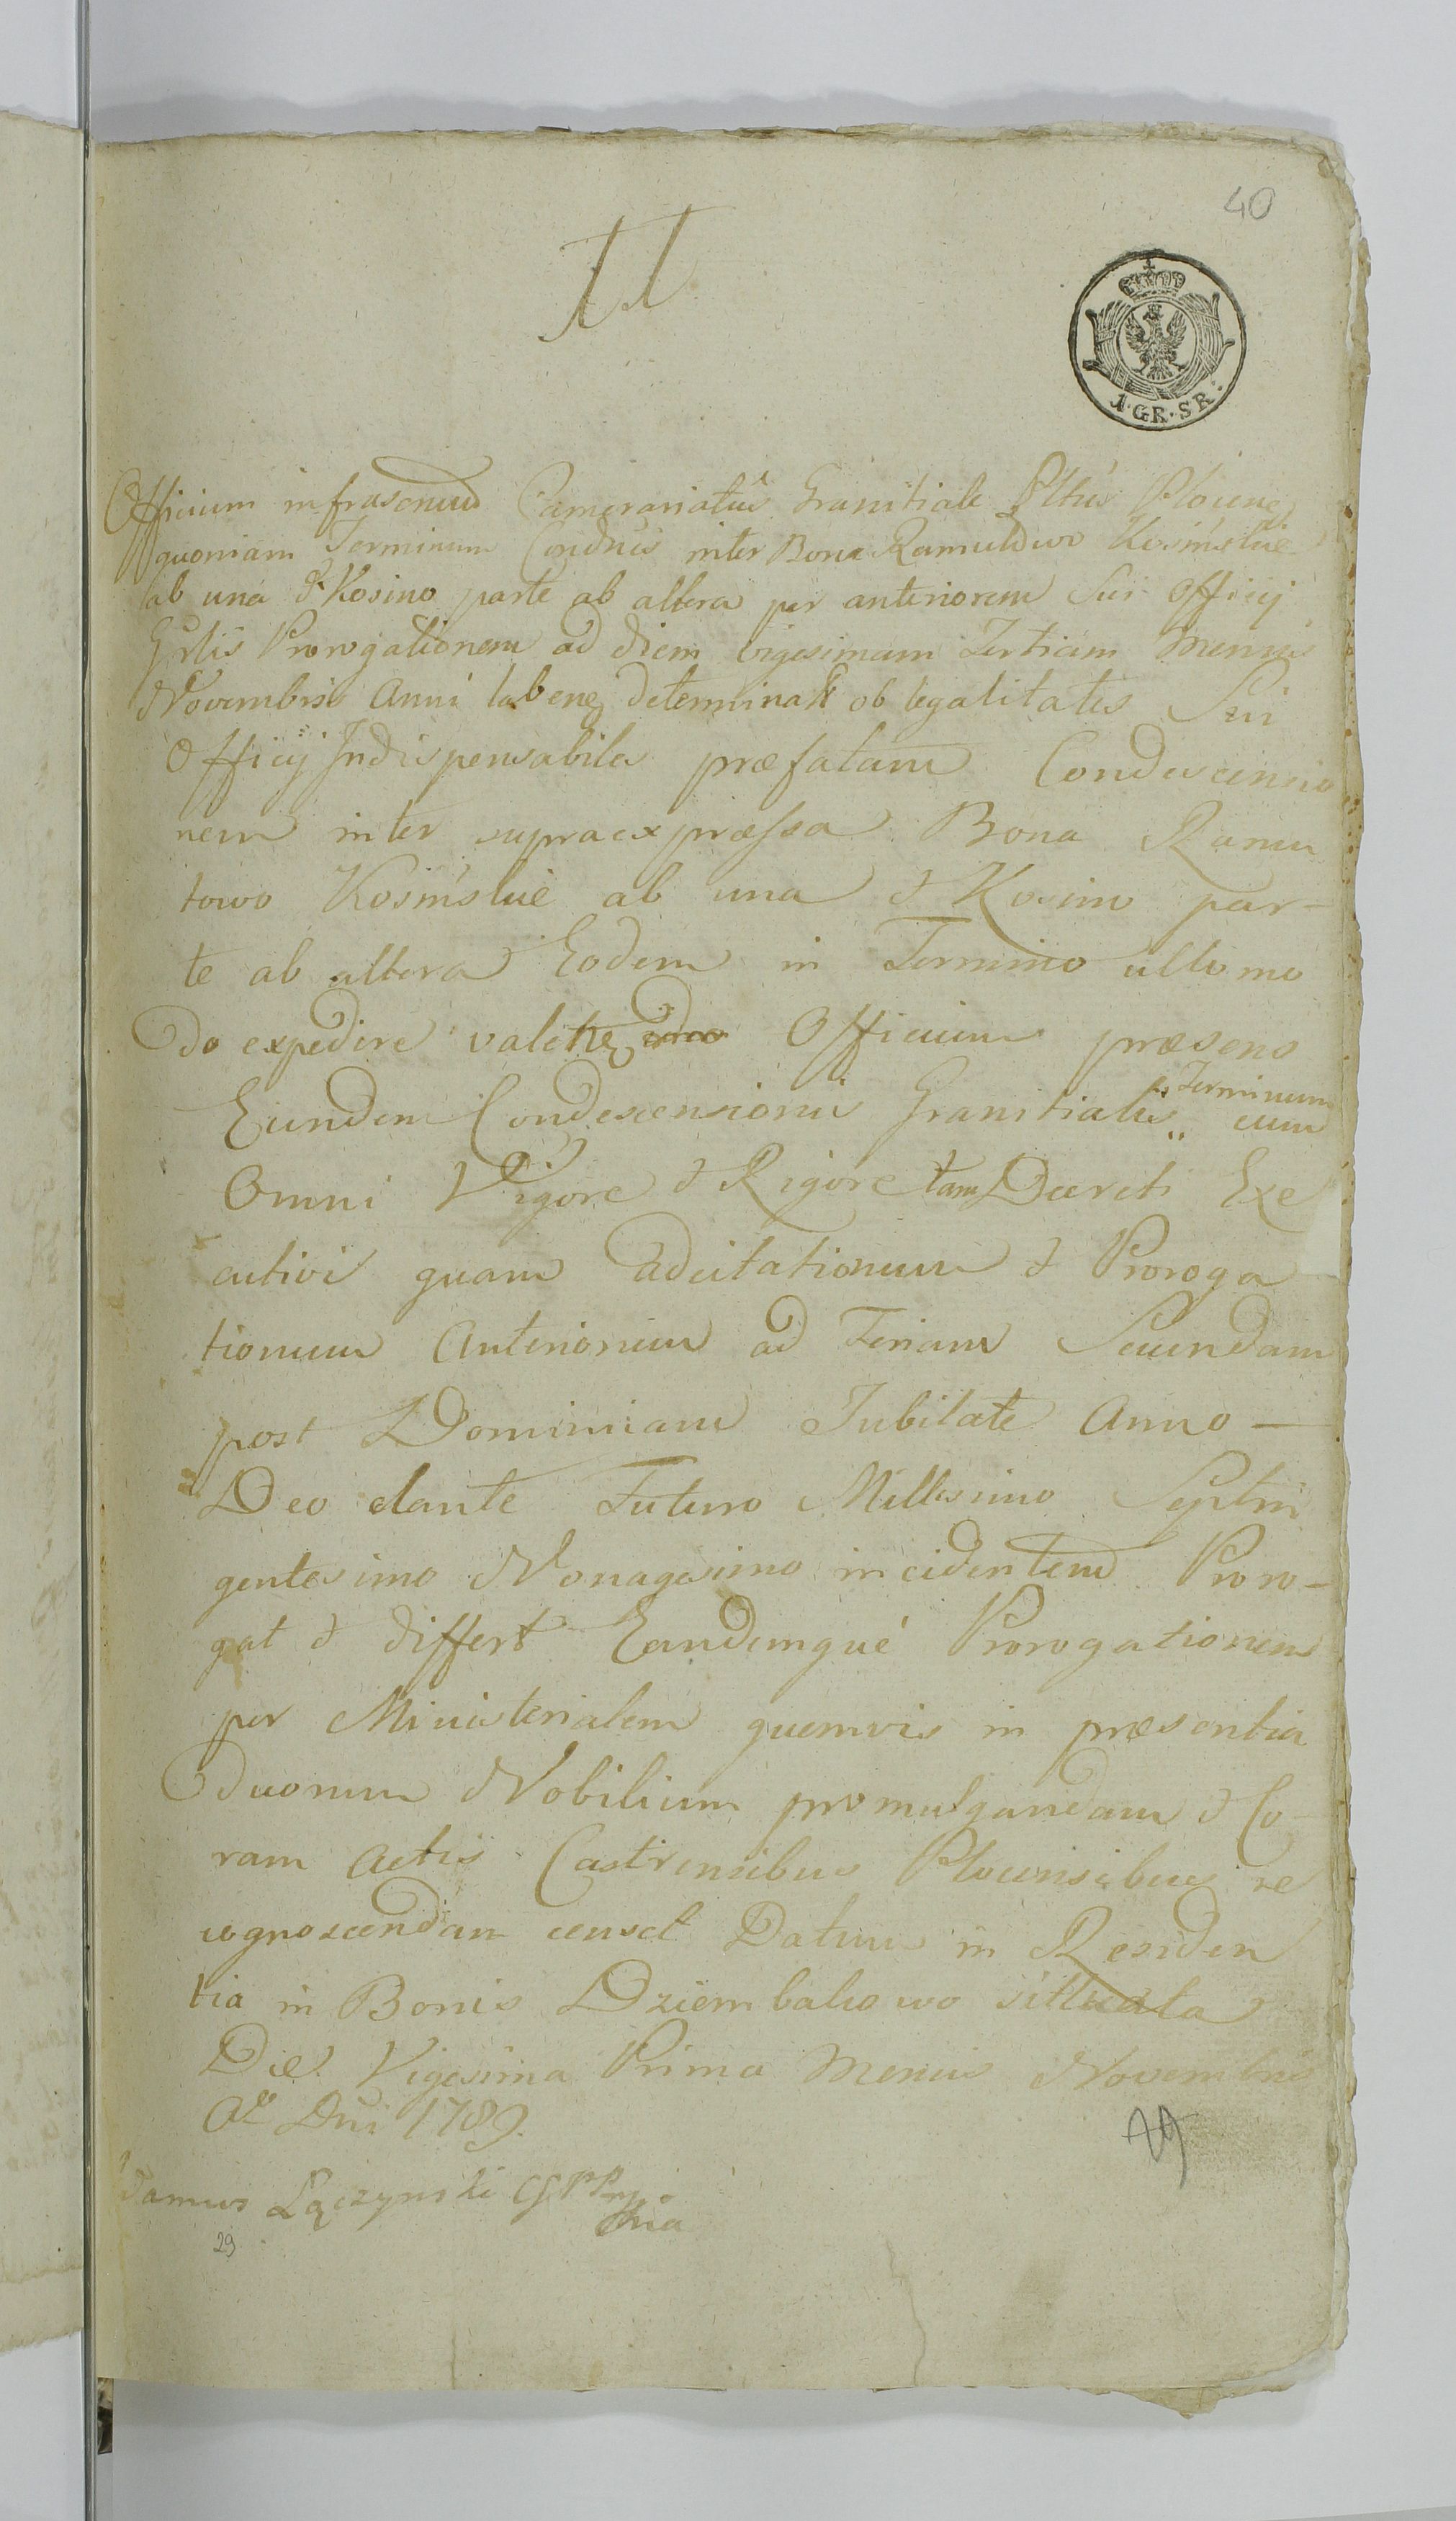 40
1 · GR · SR ·
Officium infrascriptum Camerariatûs Granitiale Pltûs Plocens,
quoniam Terminum Condnis inter Bona Ramutowo Kosmskie
ab una & Kosino parte ab altera per anteriorem Sui Officij
Prorogationem ad diem vigesimam Tertiam Mensis
Novembris Anni labens, determinati ob legalitates Sui
Officij Indispensabiles præfatam Condescensio
nem inter supraexpræssa Bona Ramu
towo Kosmskie ab una & Kosino par-
te ab altera Eodem in Termino ullo mo
do expedire valens, Officium præsens
Eundem Condescensionis Granitialis „ Terminum cum
Omni Vigore & Rigore tam Decreti Exe
cutivi quam adcitationum & Proroga
tionum Anteriorum ad Feriam Secundam
post Dominicam Jubilate Anno —
Deo dante Futuro Millesimo Septin
gentesimo Nonagesimo incidentem Proro-
gat & differt Eandemque Prorogationem
per Ministerialem quemvis in præsentia
duorum Nobilium promulgandam & Co-
ram Actis Castrensibus Plocensibus re
cognoscendam censet Datum in Residen
tia in Bonis Dziembakowo sittuata
Die Vigesima Prima Mensis Novembris
Ao Dni 1789.
29
Damus Łączyński CGPP
29